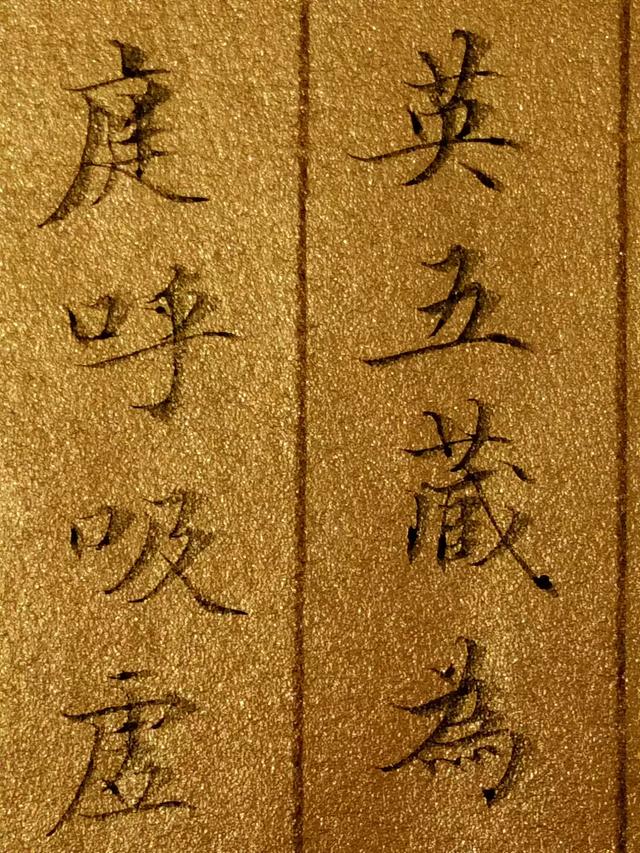 英五藏為
庭呼吸虛